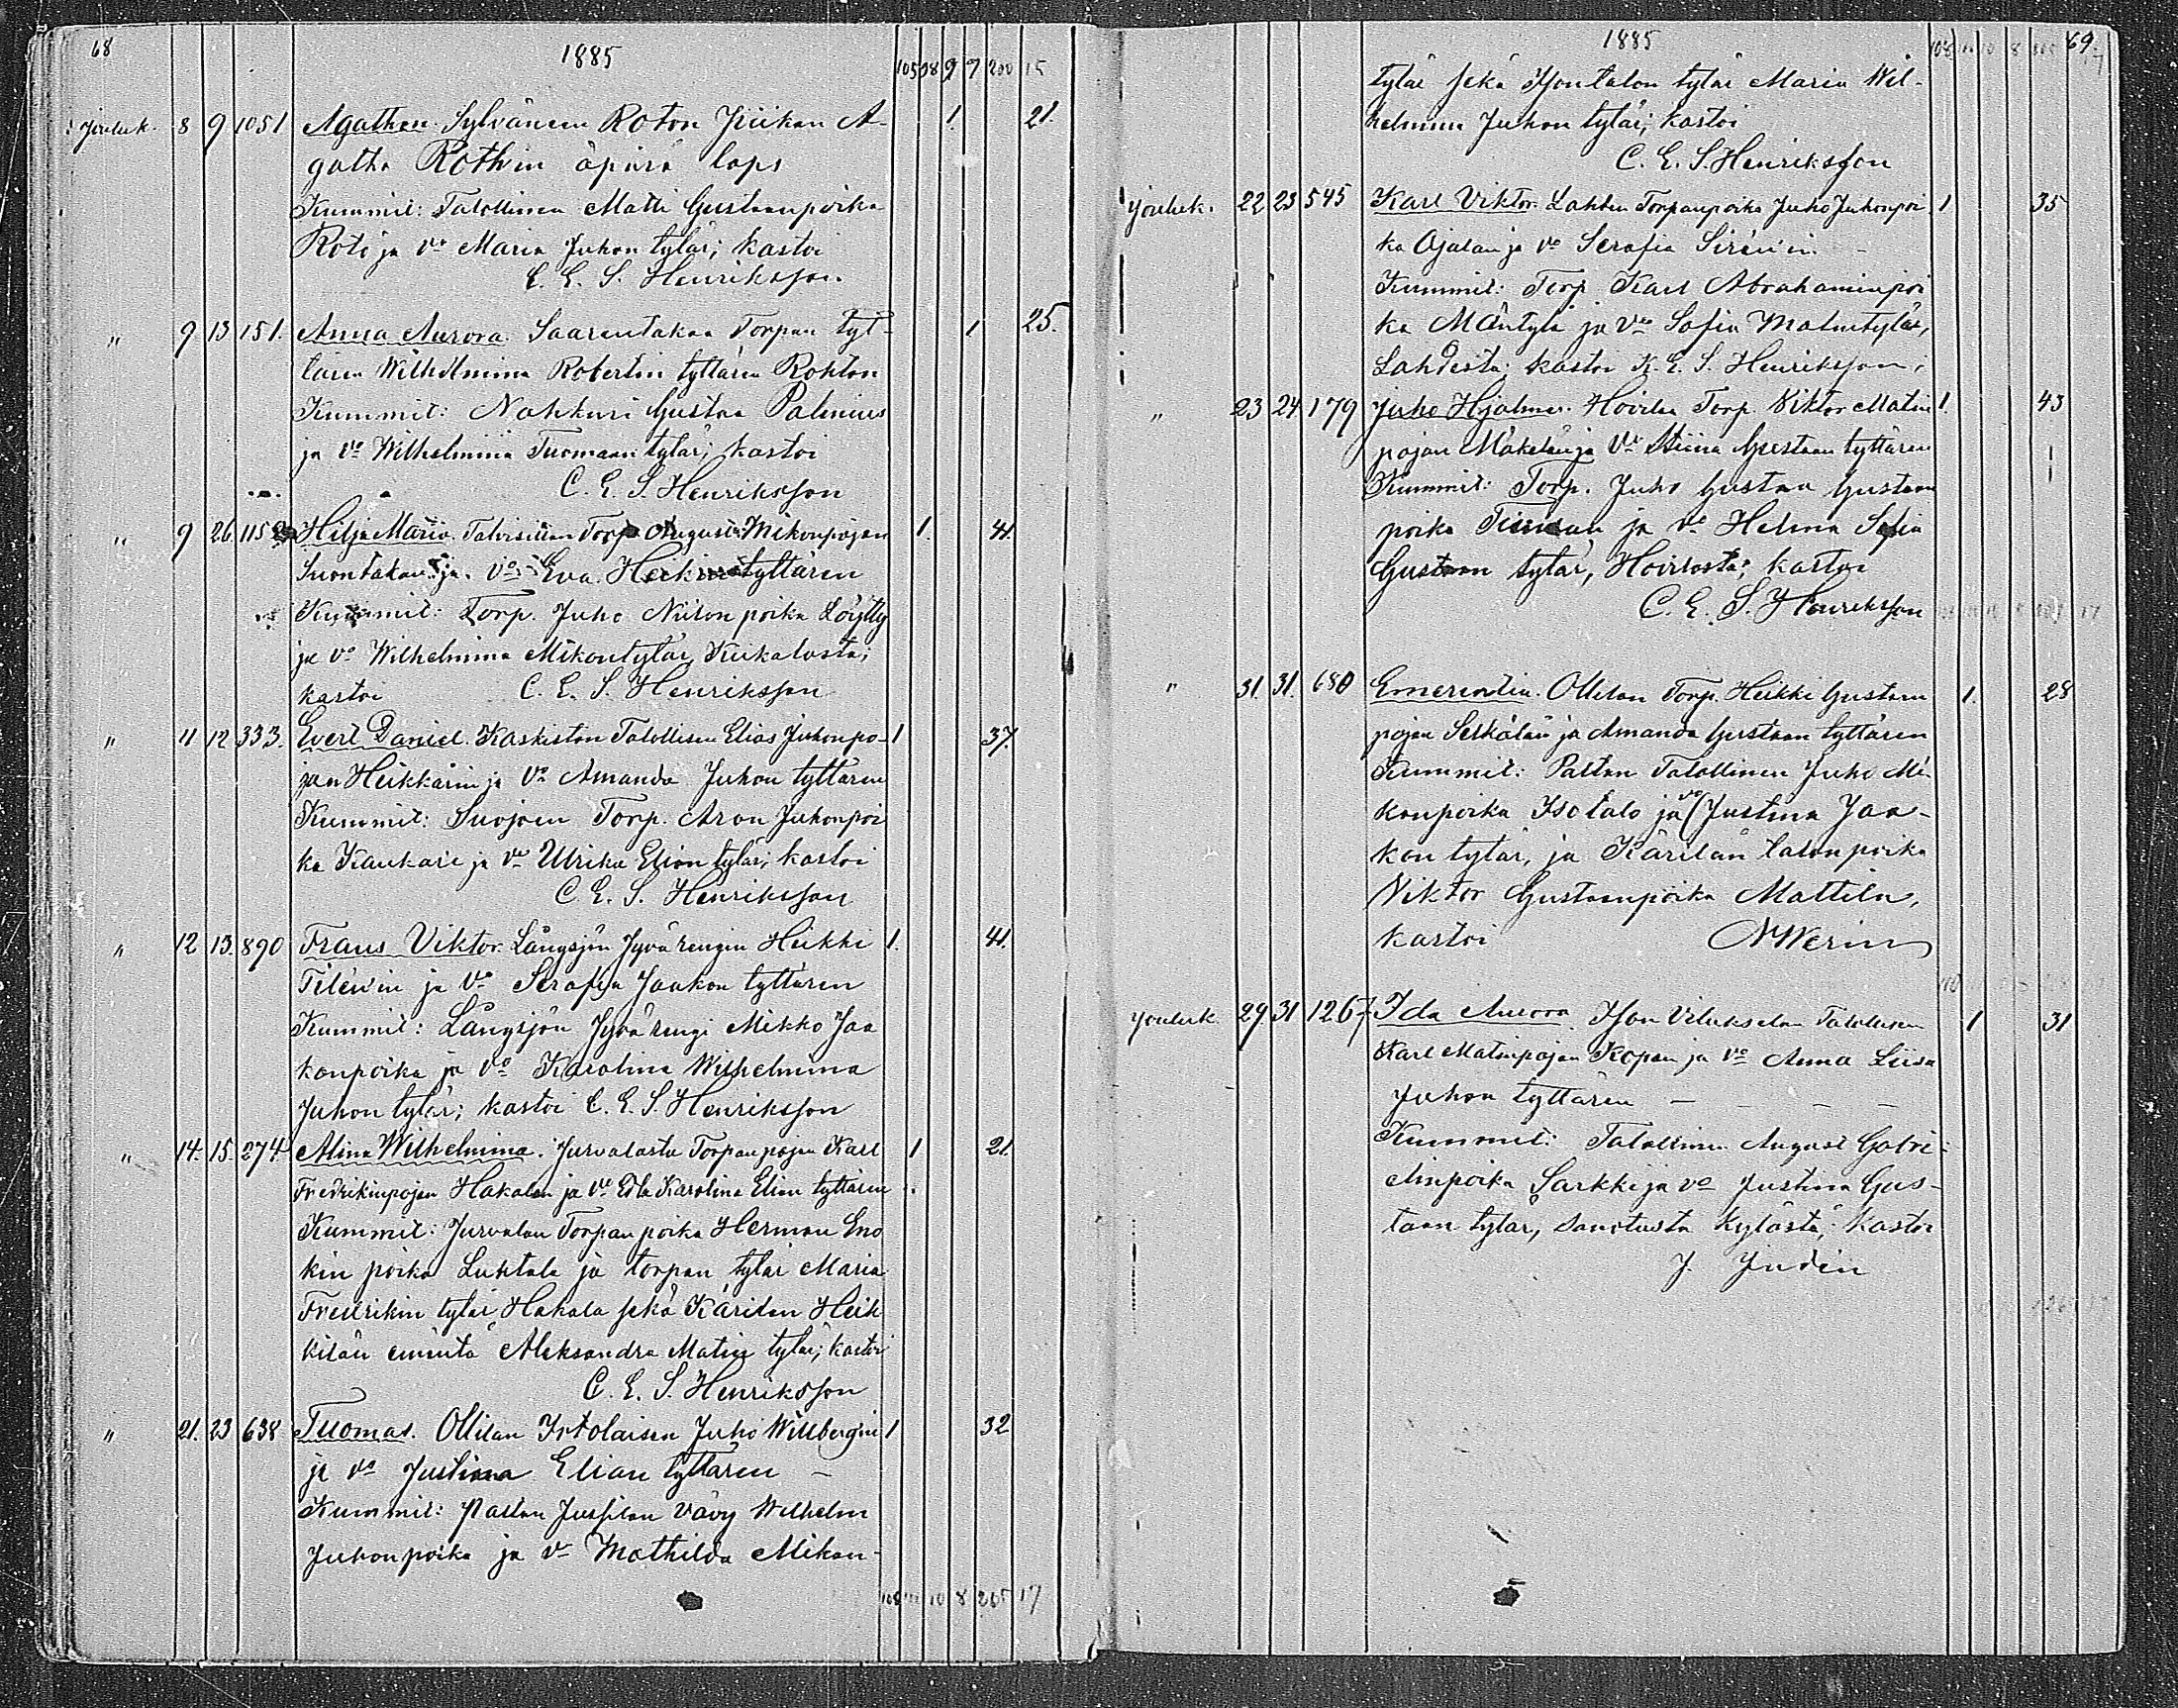 68
1885
105 98 9 7 200 15
Jouluk. 8 9 1051 Agathon. Sylvänen Roton Jiikan A- 1. 21.
gatha Rothin äpärä laps
Kummit: Talollinen Matti Gustaanpoika
Roti ja vo Maria Juhon tytär; kastoi
C. E. S. Henriksson.
" 9 13 151. Anna Aurora. Saarentakaa Torpan tyt- 1 25.
tären Wilhelmina Robertin tyttären Rohton
Kummit: Nahkuri Gustaa Palinius
ja vo Wilhelmiina Tuomaan tytär; kastoi
C. E. S. Henriksson
" 9 26 1152 Hilja Maria. Talvisillan Torp August Mikonpojan 1. 41.
Suontakan ja vo Eva Heikin tyttären
Kummit: Torp. Juho Niilon poika Löytty
ja vo Wilhelmina Mikontytär, Kiikalasta;
kastoi C. E. S. Henriksson
" 11 12 333. Evert Daniel. Kaskiston Talollisen Elias Juhonpo- 1 37.
jan Heikkärin ja vo Amanda Juhon tyttären
Kummit: Suojoen Torp. Aron Juhonpoi
ka Kaukari ja vo Ulrika Elian tytär; kastoi
C. E. S. Henriksson
" 12 13. 890 Frans Viktor. Långsjön Jyvärengin Heikki 1. 41.
Tilénin ja vo Serafia Jaakon tyttären
Kummit: Långsjön Jyvärengi Mikko Jaa
konpoika ja vo Karolina Wilhelmina
Juhon tytär; kastoi C. E. S. Henriksson
" 14. 15. 274 Alina Wilhelmina. Jurvalasta Torpanpojan Karl 1 21.
Fredrikinpojan Hakalan ja vo Edla Karolina Elian tyttären
Kummit: Jurvalan Torpan poika Herman Eno
kin poika Luhtala ja torpan tytär Maria
Fredrikin tytär Hakala sekä Kärilän Heik
kilän emintä Aleksandra Matin tytär; kastoi
C. E. S. Henriksson
" 21. 23 638 Tuomas. Ollilan Irtolaisen Juho Willbergin 1 32
ja vo Justiina Elian tyttären -
Kummit: Paltan Jussilan vävy Wilhelm
Juhonpoika ja vo Mathilda Mikon-
108 10 8 205 17
1885
69.
tytär sekä Isontalon tytär Maria Wil-
helmina Juhon tytär; kastoi
C. E. S. Henriksson
Jouluk. 22 23 545 Karl Viktor. Lahden Torpanpoika Juho Juhonpoi 1 35
ka Ojalan ja vo Serafia Sirénin. -
Kummit: Torp. Karl Abrahaminpoi
ka Mäntylä ja vo Sofia Matintytär,
Lahdesta; kastoi K. E. S. Henriksson;
" 23 24 179 Juho Hjalmar. Hoirilan Torp. Viktor Matin 1. 43
pojan Mäkelän ja vo Stiina Gustaan tyttären
Kummit: Torp. Juho Gustaa Gustaan
poika ja vo Helena Sofia
Gustaan tytär, Hoirlosta; kastoi
C. E. S. Henriksson
" 31. 31. 680 Emerentia. Ollilan Torp. Heikki Gustaan 1. 28
pojan Selkälän ja Amanda Gustaan tyttären
Kummit: Paltan Talollinen Juho Mi
konpoika Isotalo ja vo Justina Jaa-
kon tytär, ja Kärilän talonpoika
Viktor Gustaanpoika Mattila,
kastoi N Werin
Jouluk. 29. 31 1267 Ida Aurora. Ison Vilukselan Talollisen 1 31
Karl Matinpojan Kopan ja vo Anna Liisa
Juhon tyttären - - - -
Kummit: Talollinen August Gabri-
elinpoika Sarkki ja vo Justina Gus-
taan tytär, sanotusta kylästä; kastoi
J. Judin